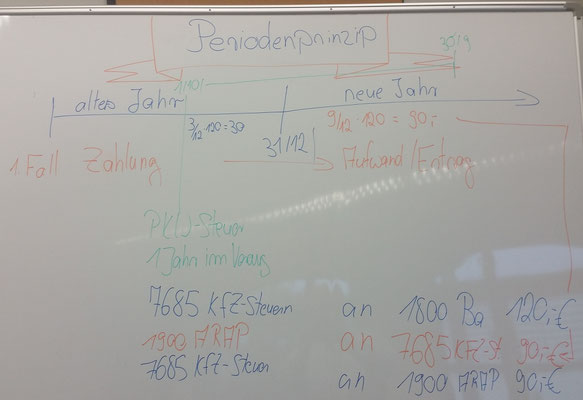 Periodenprinzip
1/10/ 30/9
altes Jahr neue Jahr
3/12 · 120 = 30 9/12 · 120 = 90,-
31/12
1. Fall Zahlung → Aufwand/Ertrag
PKW-Steuer
1 Jahr im Voraus
7685 KfZ-Steuern an 1800 Ba 120,-€
1900 ARAP an 7685 KFZ-St. 90,-€
7685 KfZ-Steuer
an 1900 ARAP 90,-€